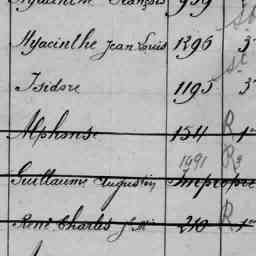 Hyacinthe François 959
Hyacinthe Jean Louis 1296 3
Isidore 1195 3
Alphonse 154 R 1er
1491 R9
Guillaume Augustin Impropre
René Charles 210 R 1er